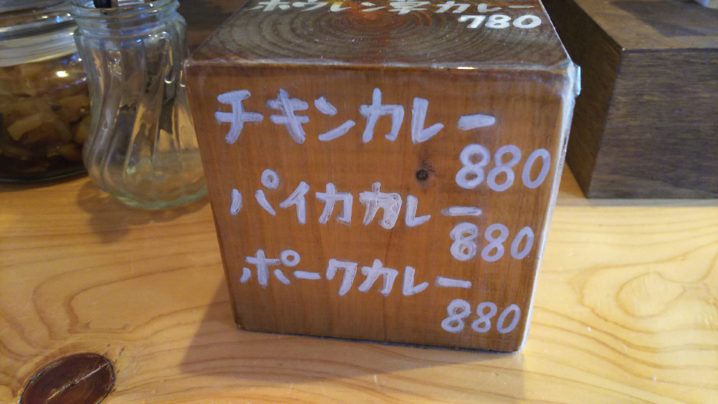 ホウレン草カレー
780
チキンカレー
880
パイカカレー
880
ポークカレー
880